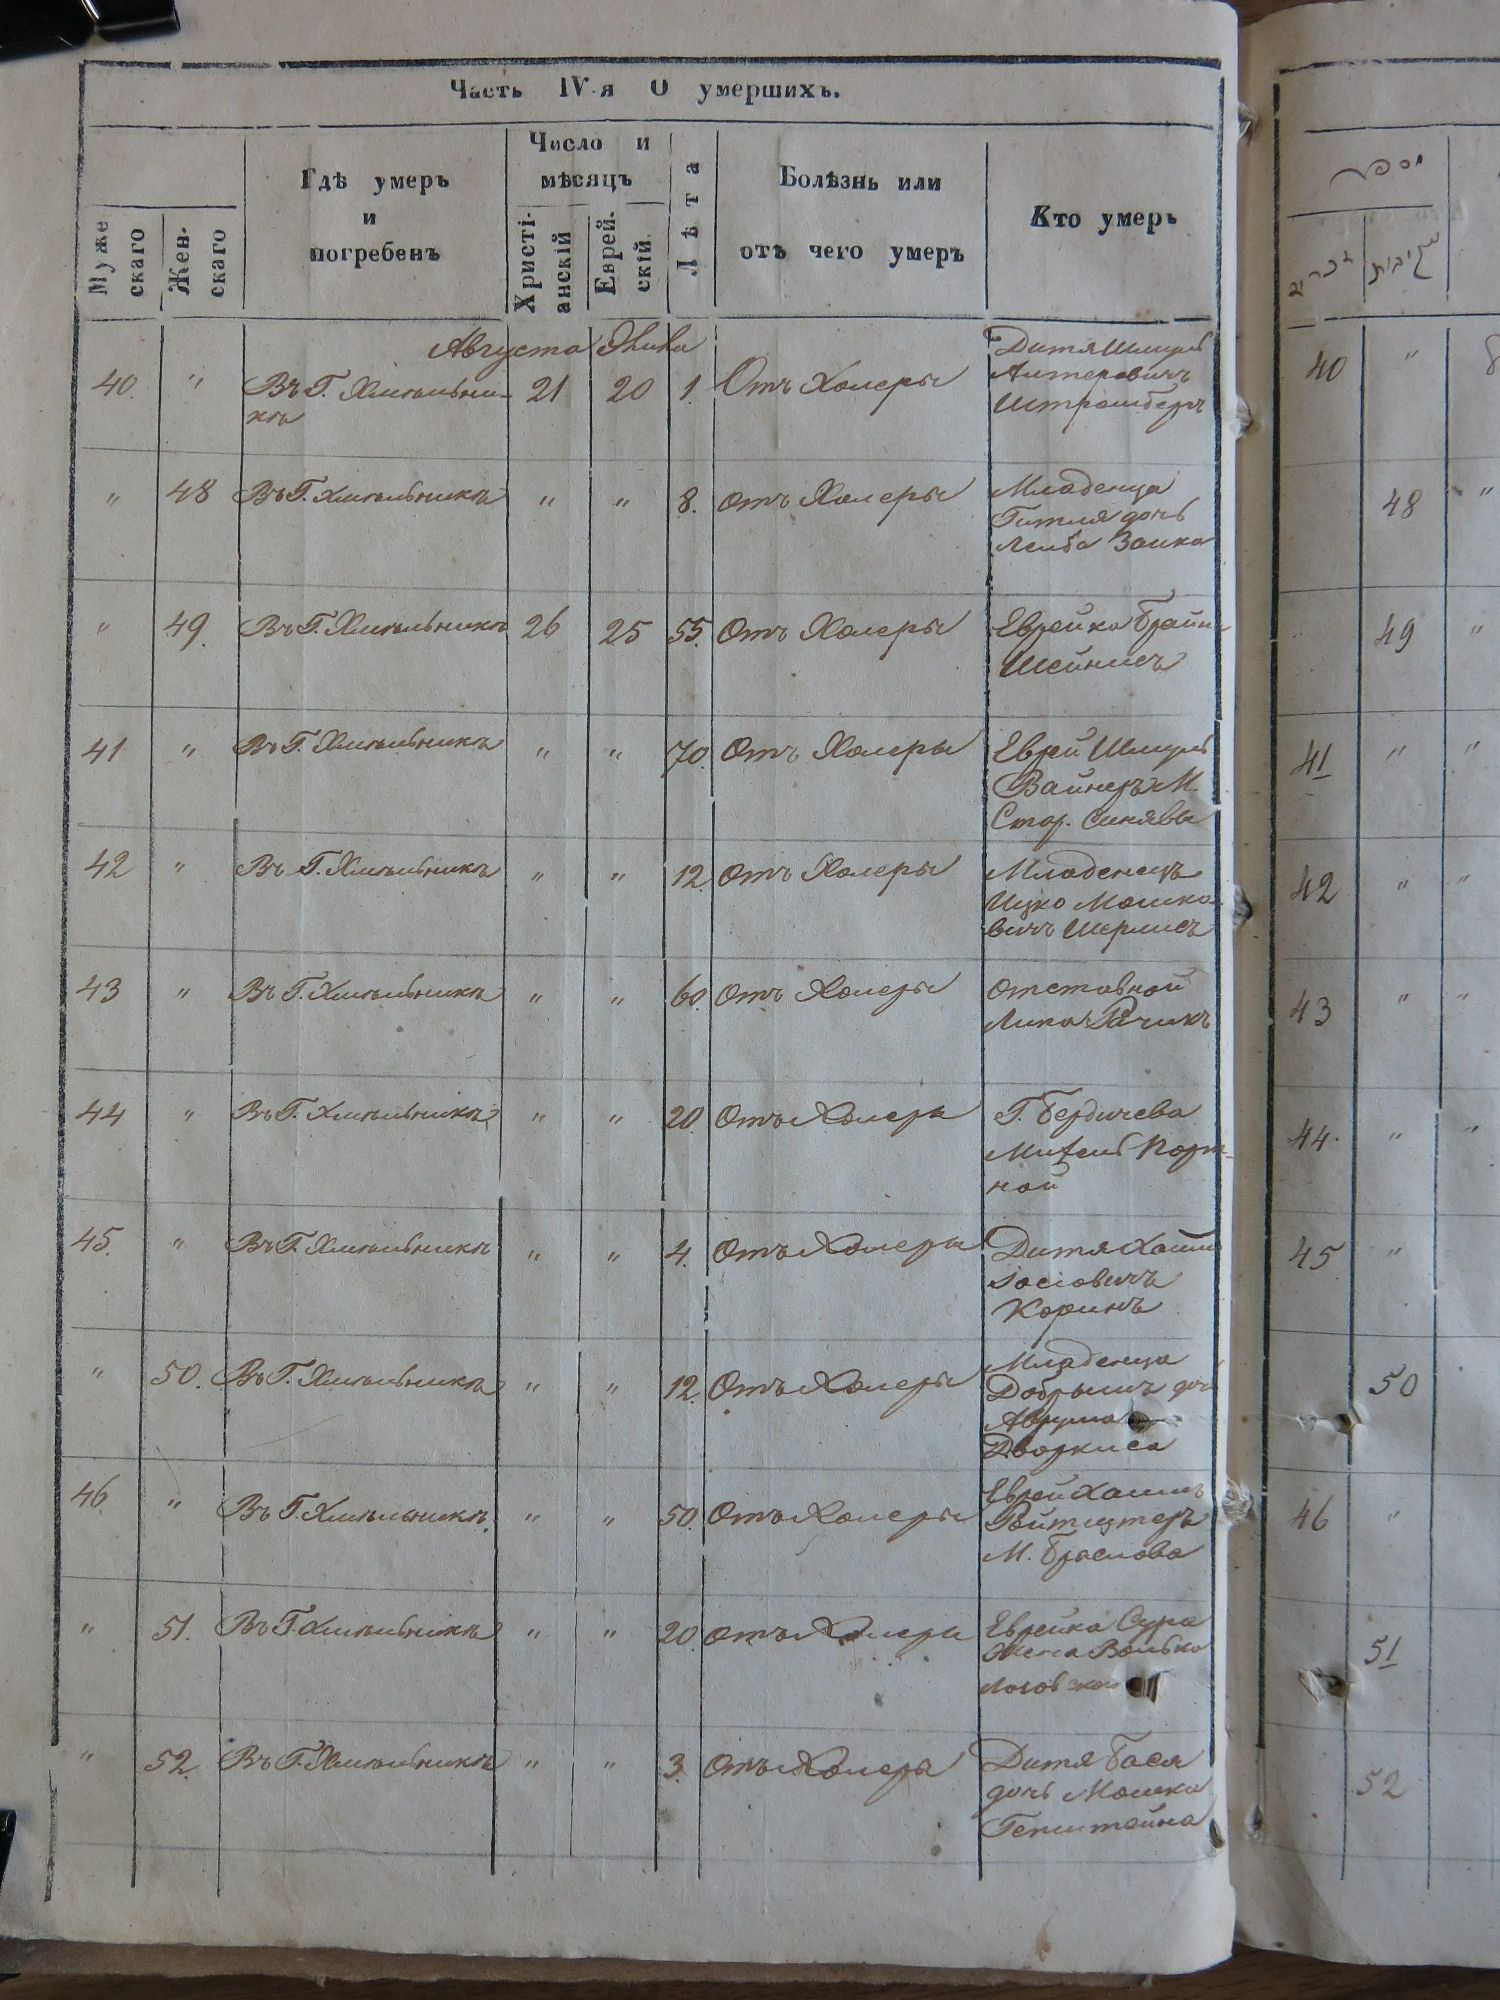 Часть IV-я О умершихъ.
Муже скаго
Жен- скаго
Гдѣ умеръ
и
погребенъ
Число и
мѣсяцъ
Христі- анскій
Еврей- скій
Лѣта
Болѣзнь или
отъ чего умеръ
Кто умеръ
Августа
40. " Въ Г. Хмельни- 21 20 1. Отъ Холеры Дитя Шмуль
кѣ Альтеровичъ
Штромбергъ
" 48 Въ Г. Хмельникѣ " " 8. Отъ Холеры Младенца
Гитля дочь
Лейба Заика
" 49. Въ Г. Хмельникѣ 26 25 55. Отъ Холеры Еврейка
Шейнисъ
41 " Въ Г. Хмельникѣ " " 70. Отъ Холеры Еврей Шмуль
Вайнеръ М.
Стар. Синявы
42 " Въ Г. Хмельникѣ " " 12. Отъ Холеры Младенецъ
Ицко Мошко-
вичъ
43 " Въ Г. Хмельникѣ " " 60. Отъ Холеры отставной
44 " Въ Г. Хмельникѣ " " 20. Отъ Холеры Г. Бердичева
Порт-
ной
45. " Въ Г. Хмельникѣ " " 4. Отъ Холеры Дитя Хаим
Іосіовичъ
Коринъ
" 50. Въ Г. Хмельникѣ " " 12. Отъ Холеры Младенца
доч
Аврума
Дворкиса
46. " Въ Г. Хмельникѣ. " " 50. Отъ Холеры Еврей Хаимъ
М. Браслова
" 51. Въ Г. Хмельникѣ " " 20. Отъ Холеры Еврейка Сура
Жена Волько
" 52. Въ Г. Хмельникѣ " " 3. Отъ Холеры Дитя Бася
дочь Мошка
Гепштейна
40 "
48 "
49 "
41 " "
42 " "
43 " "
44. " "
45 "
50
46 "
51
52